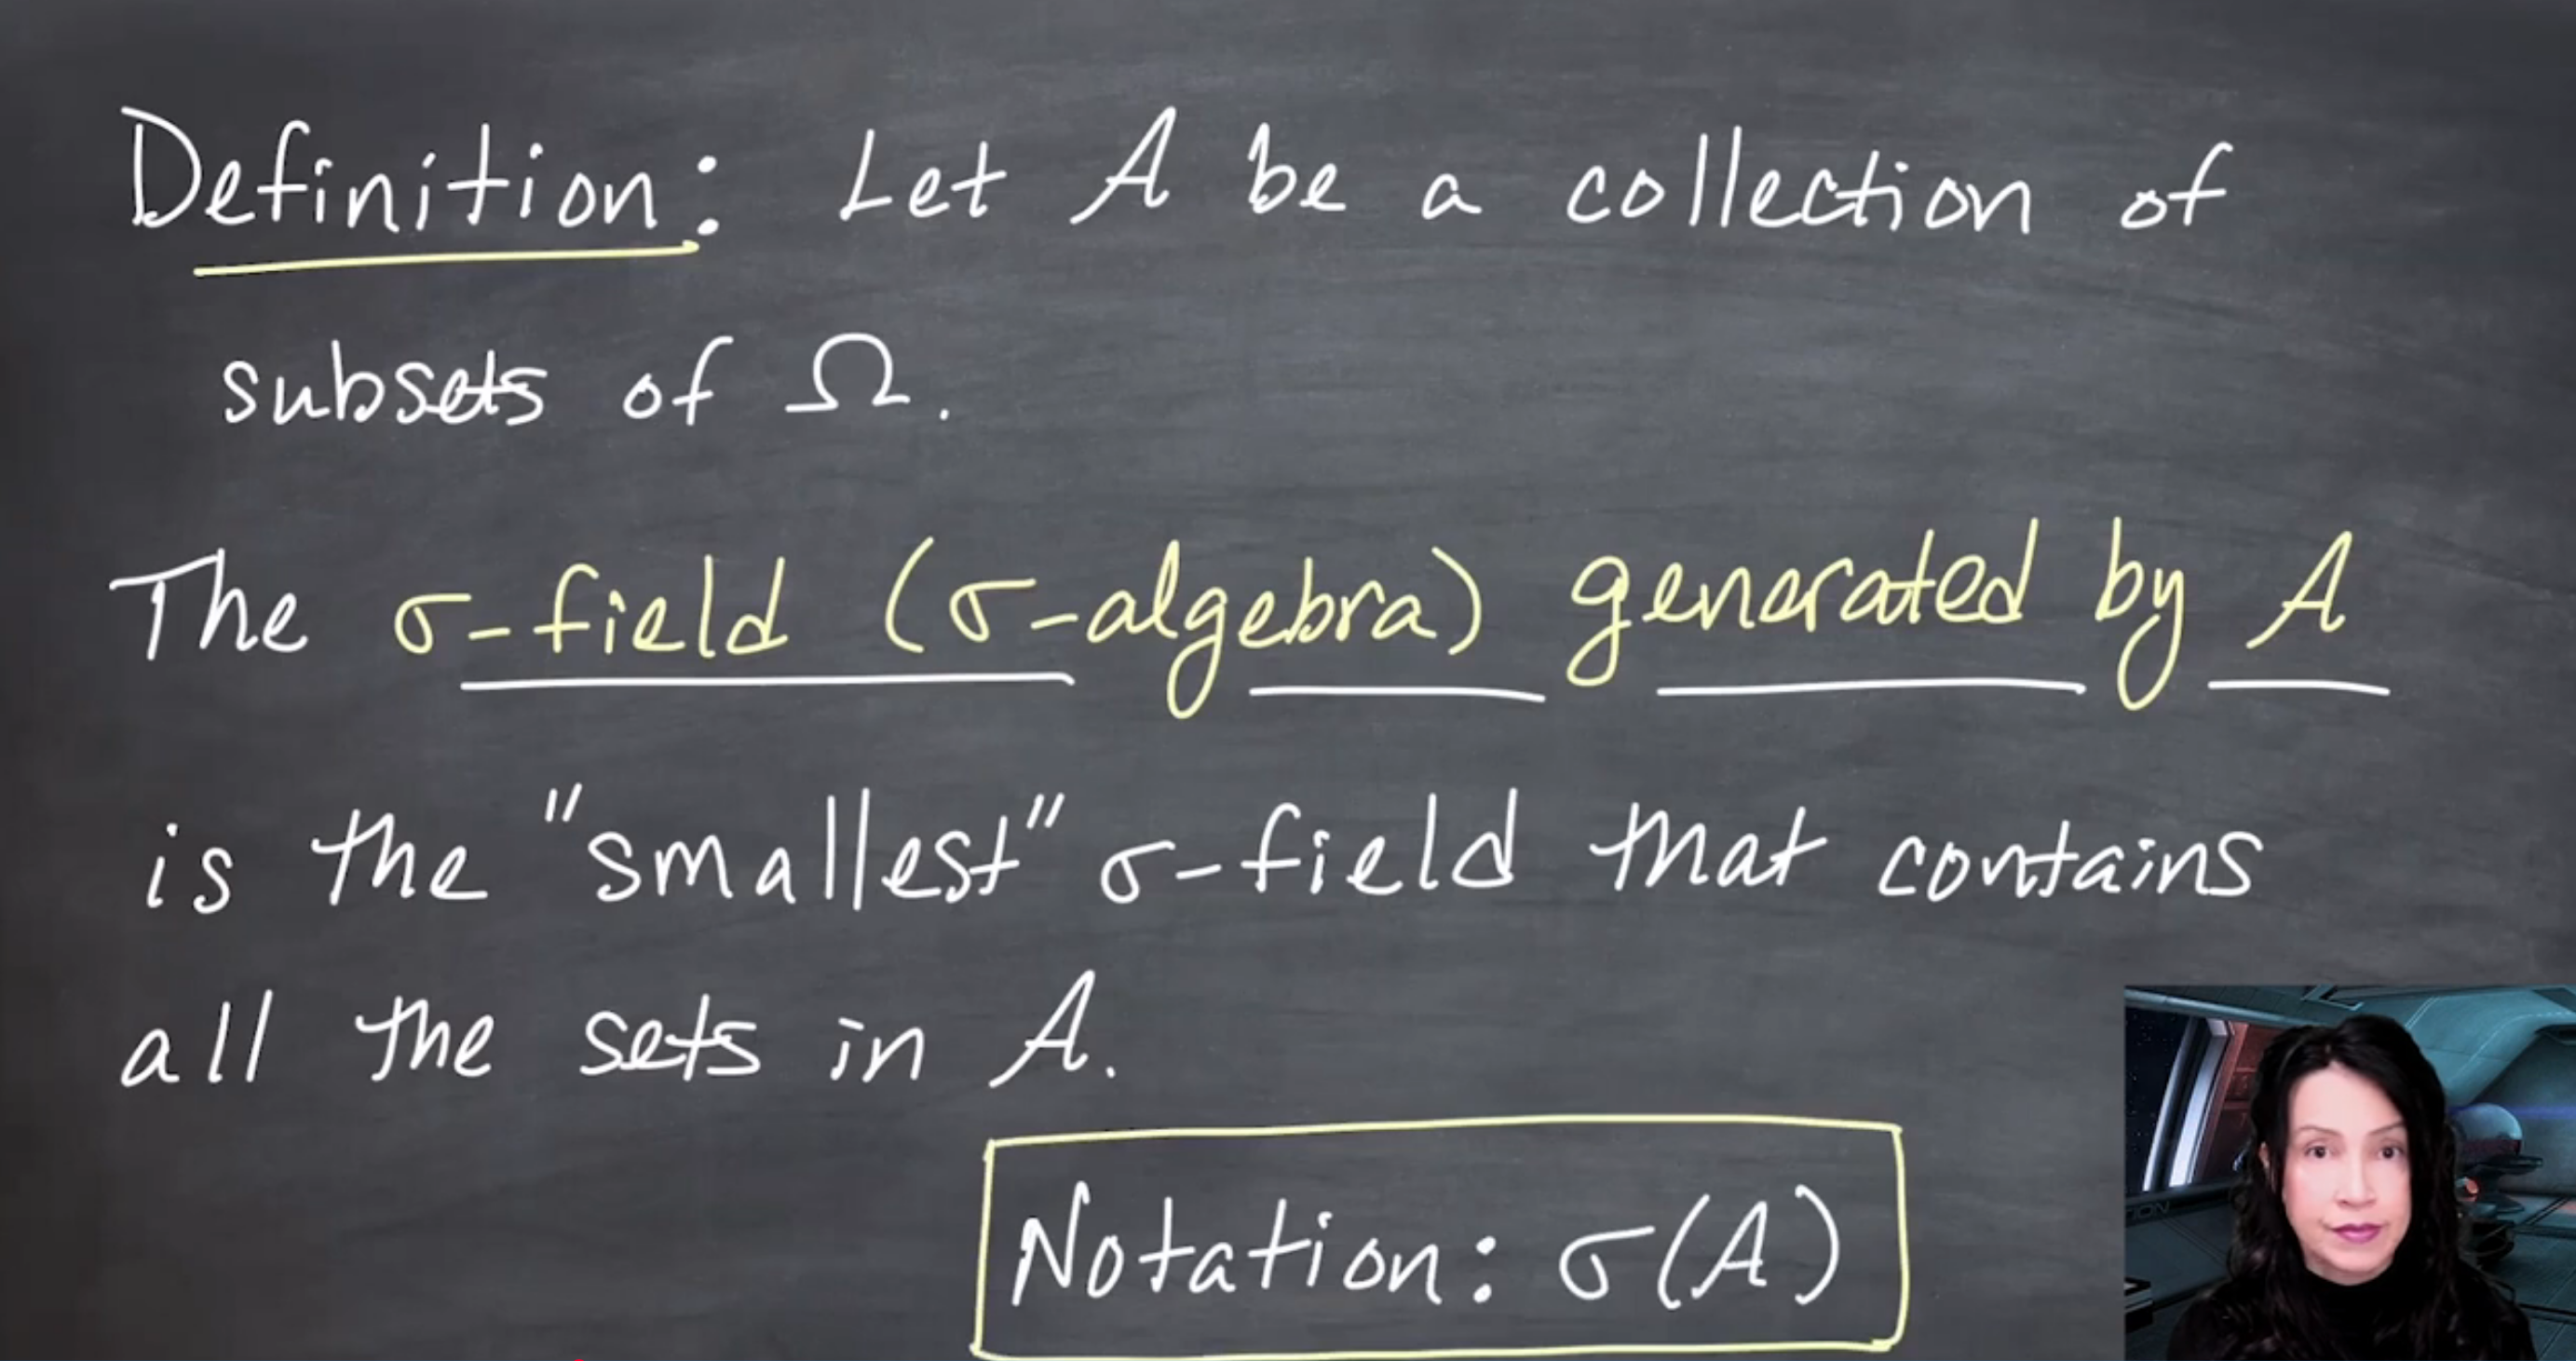 Definition: Let A be a collection of
subsets of Ω.
The σ-field (σ-algebra) generated by A
is the "smallest" σ-field that contains
all the sets in A.
Notation: σ(A)